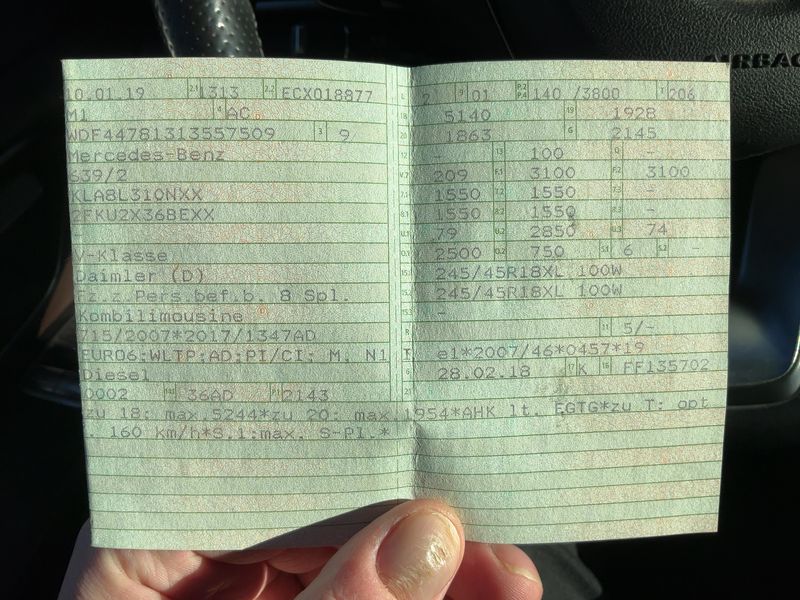 AIRBAG
10.01.19 2.1 1313 2.2 ECX018877
M1 4 AC
WDF44781313557509 3 9
Mercedes-Benz
639/2
KLA8L310NXX
2FKU2X36BEXX
V-Klasse
Daimler (D)
Fz.z.Pers.bef.b. 8 Spl.
Kombilimousine
715/2007*2017/1347AD
EURO6;WLTP;AD;PI/CI; M, N1 I
Diesel
0002 36AD P.1 2143
zu 18: max.5244*zu 20: max.1954*AHK lt. EGTG*zu T: opt
. 160 km/h*S.1:max. S-Pl.*
L 2 9 01 P.2 P.4 140 /3800 T 206
18 5140 19 1928
20 1863 G 2145
12 - 13 100 Q -
V.7 209 F.1 3100 F.2 3100
7.1 1550 7.2 1550 7.3 -
8.1 1550 8.2 1550 8.3 -
U.1 79 U.2 2850 U.3 74
O.1 2500 O.2 750 S.1 6 S.2 -
15.1 245/45R18XL 100W
245/45R18XL 100W
15.3 -
R 11 5/-
K e1*2007/46*0457*19
6 28.02.18 17 K 16 FF135702
21